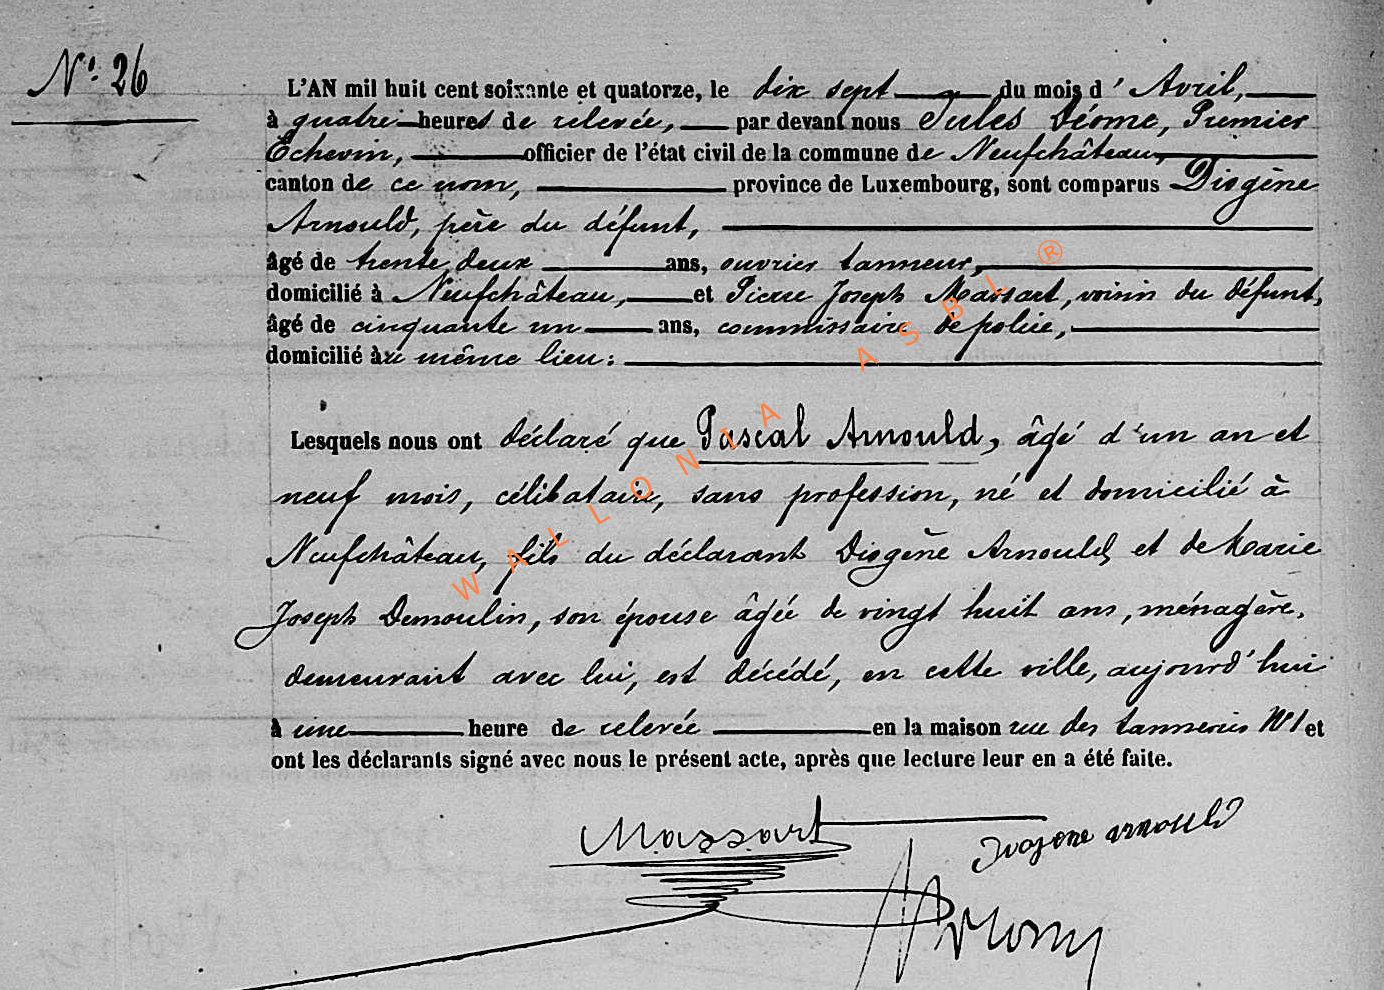 N° 26
L'AN mil huit cent soixante et quatorze, le dix sept du mois d'Avril,
à quatre heures de relevée, par devant nous Jules Déome, Premier
Echevin, officier de l'état civil de la commune de Neufchâteau,
canton de ce nom, province de Luxembourg, sont comparus Diogène
Arnould, père du défunt,
âgé de trente deux ans, ouvrier tanneur,
domicilié à Neufchâteau, et Pierre Joseph Massart, voisin du défunt,
âgé de cinquante un ans, commissaire de police,
domicilié au même lieu:
Lesquels nous ont déclaré que Pascal Arnould, âgé d'un an et
neuf mois, célibataire, sans profession, né et domicilié à
Neufchâteau, fils du déclarant Diogène Arnould, et de Marie
Joseph Demoulin, son épouse âgée de vingt huit ans, ménagère,
demeurant avec lui, est décédé, en cette ville, aujourd'hui
à une heure de relevée en la maison rue des tanneries N° 1 et
ont les déclarants signé avec nous le présent acte, après que lecture leur en a été faite.
Massart
arnould
WALLONIA ASBL ®